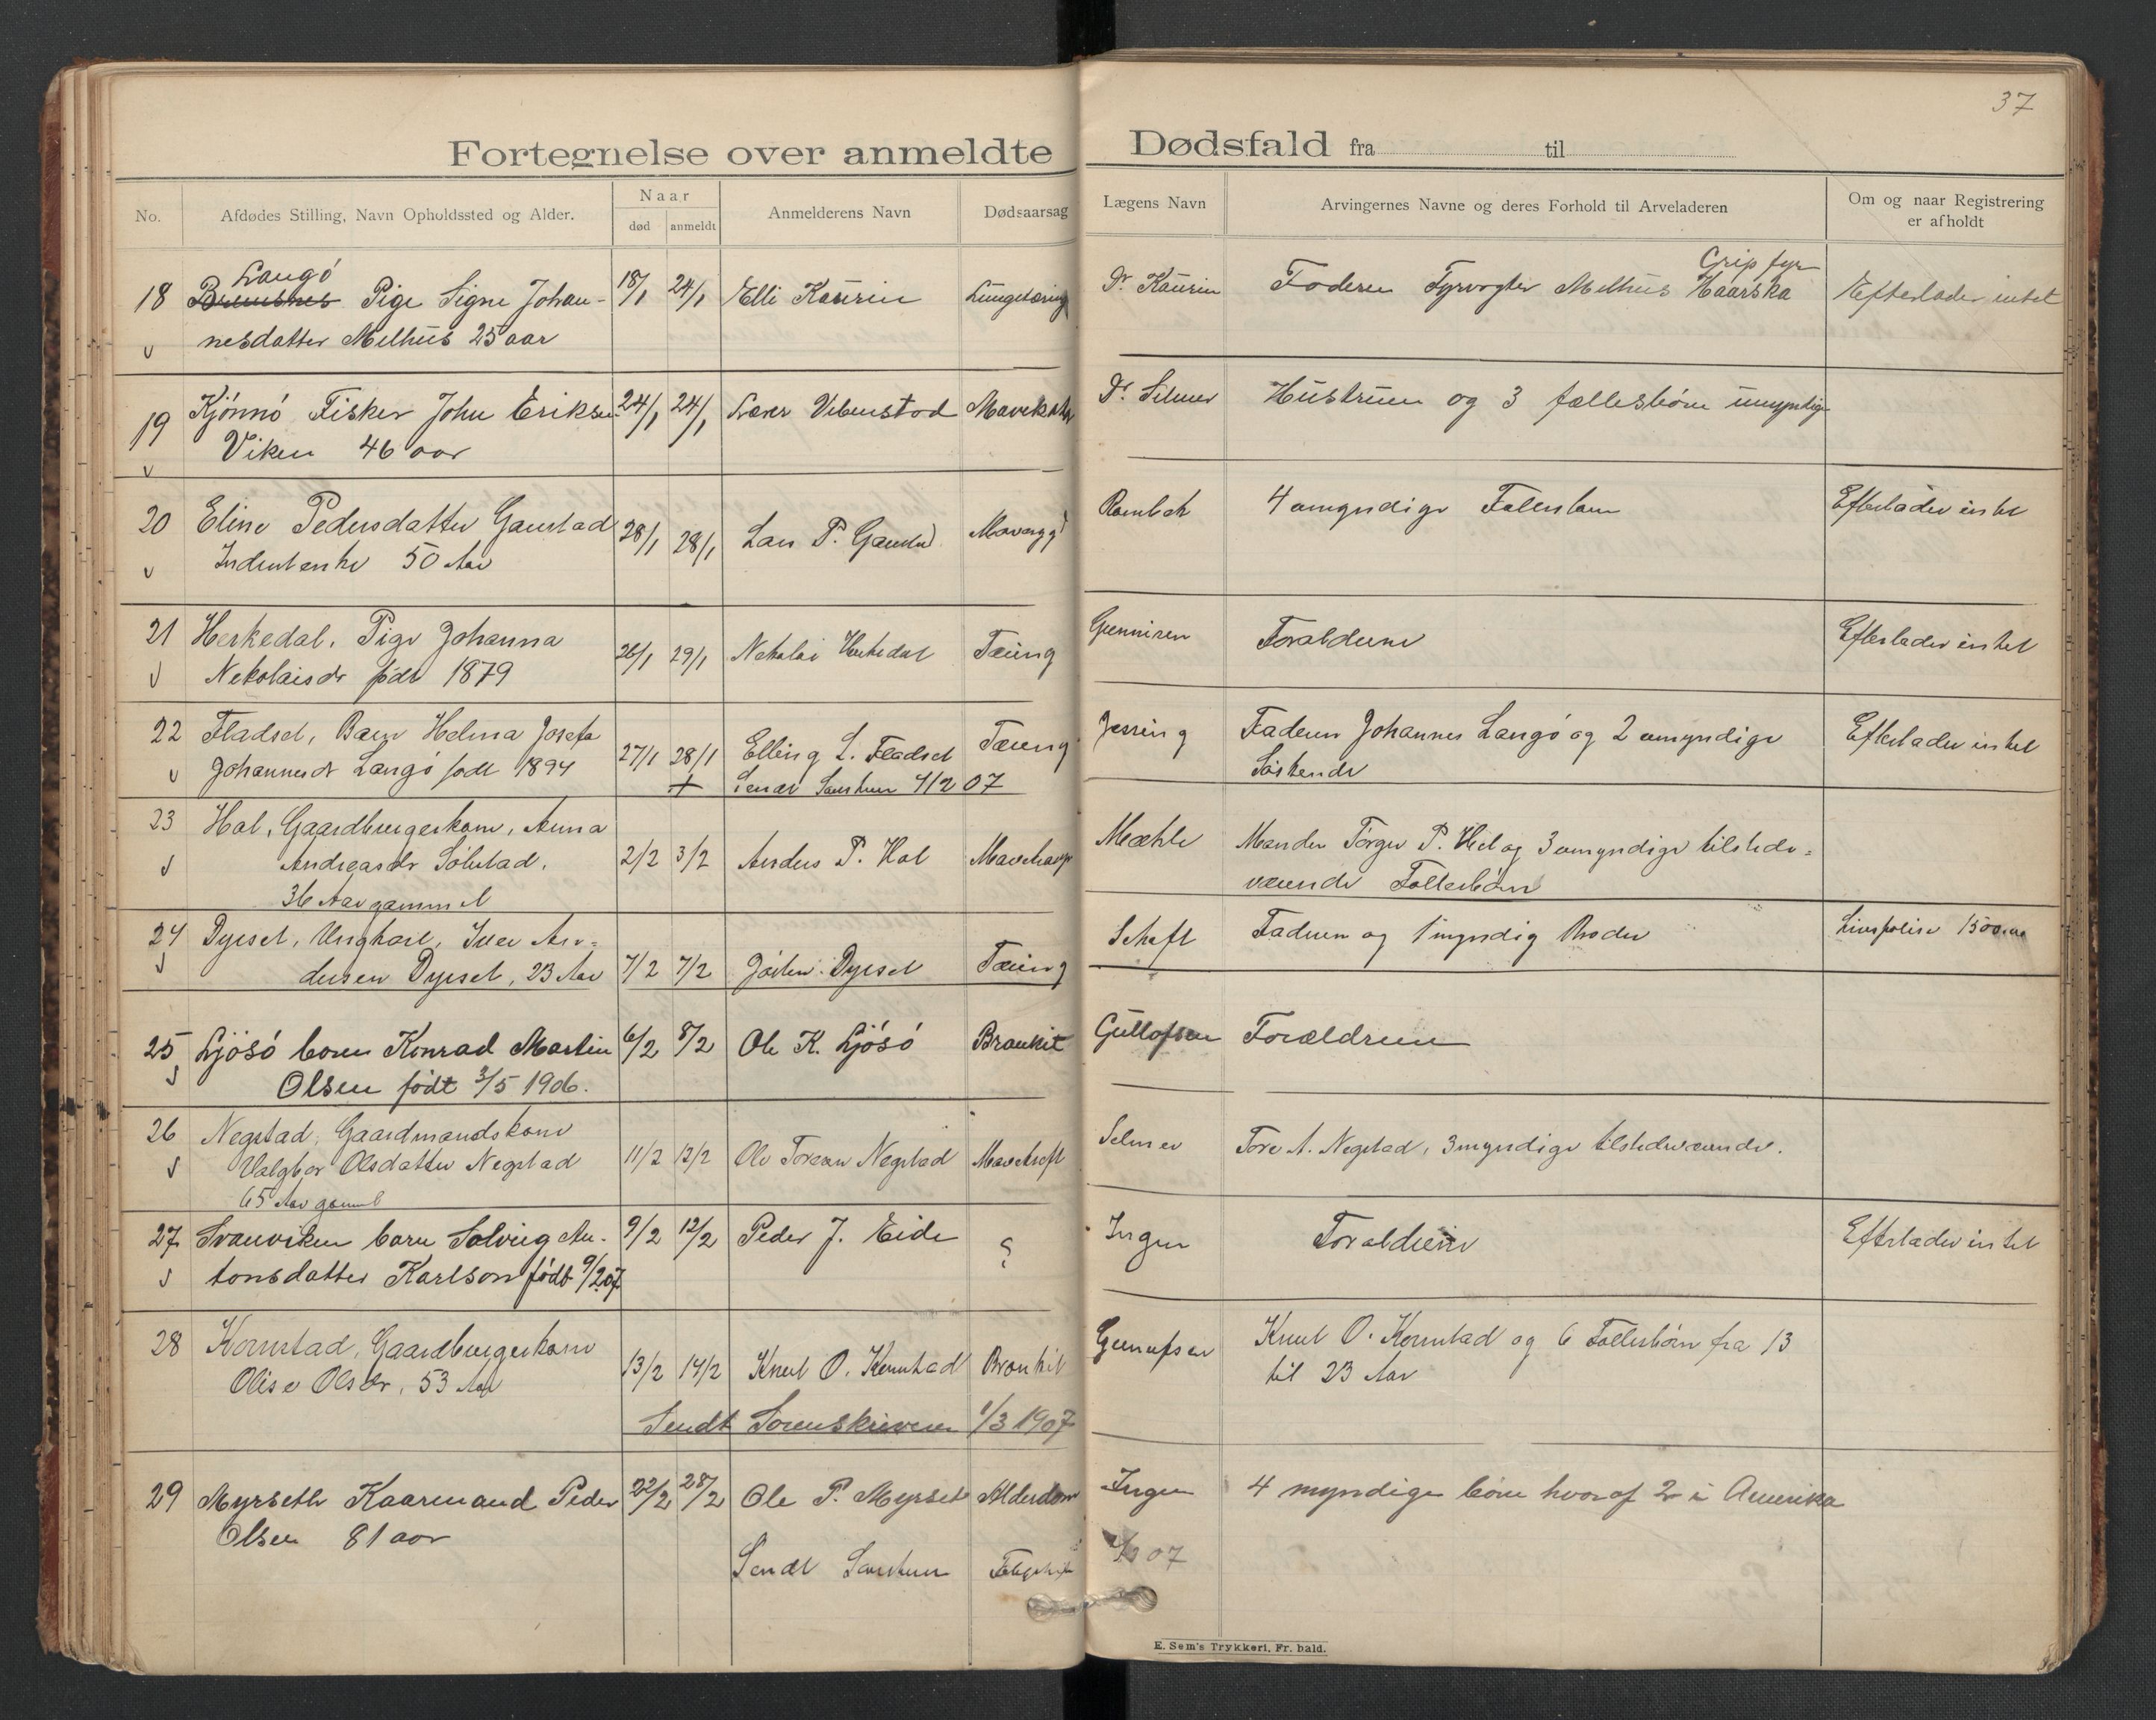 37
Fortegnelse over anmeldte Dødsfald fra til
No.
Afdødes Stilling, Navn Opholdssted og Alder.
Naar
død
anmeldt
Anmelderens Navn
Dødsaarsag
Lægens Navn
Arvingernes Navne og deres Forhold til Arveladeren
Om og naar Registrering
er afholdt
Langö
Grip fyr
18 Bremsnes Pige Signe Johan- 18/1 24/1 Elli Kaurin Lungetæring Dr. Kaurin Faderen Fyrvogter Melhus Haarska Efterlader intet
v nesdatter Melhus 25 aar
19 Kjönnö Fisker John Eriksen 24/1 24/1 Lærer Vebenstad Dr. Selmer Hustruen og 3 fællesbörn umyndige
v Viken 46 aar
20 Eline Pedersdatter Gaustad 28/1 28/1 Lars P. Gaustad Rambech 4 umyndige Fællesbørn Efterlader intet
v Inderstenke 50 Aar
21 Herkedal, Pige Johanna 26/1 29/1 Nekolai Herkedal Tæring Forældrene Efterlader intet
v Nekolaisdr født 1879
22 Fladset, Barn Helma Josefa 27/1 28/1 Elling L. Fladset Tæring Jessing Faderen Johannes Langö og 2 umyndige Efterlader intet
v Johannesdr Langö født 1894 + Sendt 4/2 07 Söskende
23 Hol, Gaardbrugerkone, Anna 2/2 3/2 Anders P. Hol Mæhle Manden Törger P. Hol og 3 umyndige tilstede-
v Andreasdr Solstad, værende Fællesbörn
36 Aar gammel
24 Dyrset, Ungkarl, Iver An- Schaft Faderen og 1 myndig Broder Livspolise 1500
v dersen Dyrset, 23 Aar 7/2 7/2 Dyrset Tæring
25 Ljösö barn Konrad Martin 6/2 8/2 Ole K. Ljösö Bronkit Gullofsen Forældrene
v Olsen født 3/5 1906.
26 Negstad, Gaardmandskone Selmer Tore A. Negstad, 3 myndige tilstedeværende.
v Valgbor Olsdatter Negstad 11/2 12/2 Ole Toresen Negstad Mavekræft
65 Aar gamml
27 Svanviken barn Solveig An- 9/2 12/2 Peder J. Eide ? Ingen Forældrene Efterlader intet
v tonsdatter Karlson født 9/2 07
28 Kornstad, Gaardbrugerkone 13/2 14/2 Knut O. Kornstad Bronkit Knut O. Kornstad og 6 Fællesbörn fra 13
Olise Olsdr, 53 Aar til 23 Aar
Sendt Sorenskriveren 1/3 1907
29 Myrseth Kaarmand Peder 22/2 28/2 Ole P. Myrset Alderdom Ingen 4 myndige börn hvoraf 2 i Amerika
Olsen 81 aar
Sendt 07
E. Sem's Trykkeri, Fr. hald.